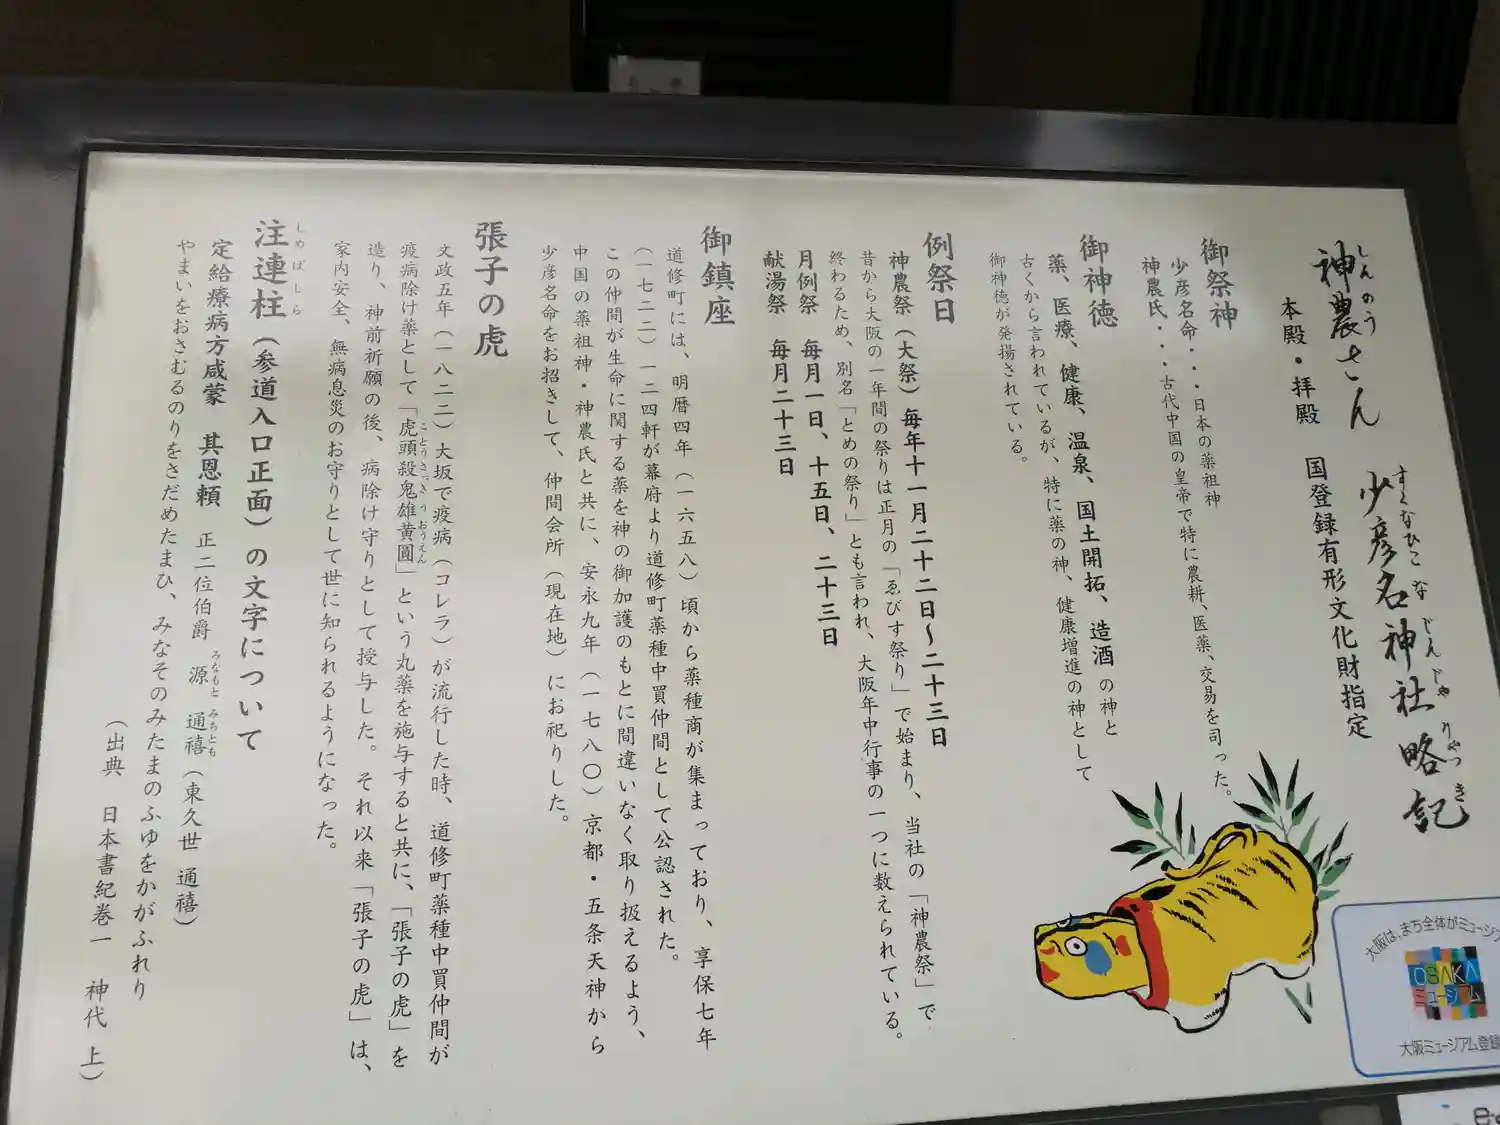 神農さん 少彦名神社略記
しんのう すくなひこな じんじゃ りゃっき
本殿・拝殿 国登録有形文化財指定
御祭神
少彦名命・・・日本の薬祖神
神農氏・・・古代中国の皇帝で特に農耕、医薬、交易を司った。
御神徳
薬、医療、健康、温泉、国土開拓、造酒の神と
古くから言われているが、特に薬の神、健康増進の神として
御神徳が発揚されている。
例祭日
神農祭(大祭)毎年十一月二十二日〜二十三日
昔から大阪の一年間の祭りは正月の「ゑびす祭り」で始まり、当社の「神農祭」で
終わるため、別名「とめの祭り」とも言われ、大阪年中行事の一つに数えられている。
月例祭 毎月一日、十五日、二十三日
献湯祭 毎月二十三日
御鎮座
道修町には、明暦四年(一六五八)頃から薬種商が集まっており、享保七年
(一七二二)一二四軒が幕府より道修町薬種中買仲間として公認された。
この仲間が生命に関する薬を神の御加護のもとに間違いなく取り扱えるよう、
中国の薬祖神・神農氏と共に、安永九年(一七八〇)京都・五条天神から
少彦名命をお招きして、仲間会所(現在地)にお祀りした。
張子の虎
文政五年(一八二二)大坂で疫病(コレラ)が流行した時、道修町薬種中買仲間が
疫病除け薬として「虎頭殺鬼雄黄圓」という丸薬を施与すると共に、「張子の虎」を
ことうさっきうおうえん
造り、神前祈願の後、病除け守りとして授与した。それ以来「張子の虎」は、
家内安全、無病息災のお守りとして世に知られるようになった。
注連柱(参道入口正面)の文字について
しめばしら
定給療病方咸蒙 其恩頼 正二位伯爵 源 通禧(東久世 通禧)
みなもと みちとも
やまいをおさむるのりをさだめたまひ、みなそのみたまのふゆをかがふれり
(出典 日本書紀巻一 神代 上)
大阪は、まち全体がミュージア
OSAKA
ミュージアム
大阪ミュージアム登録